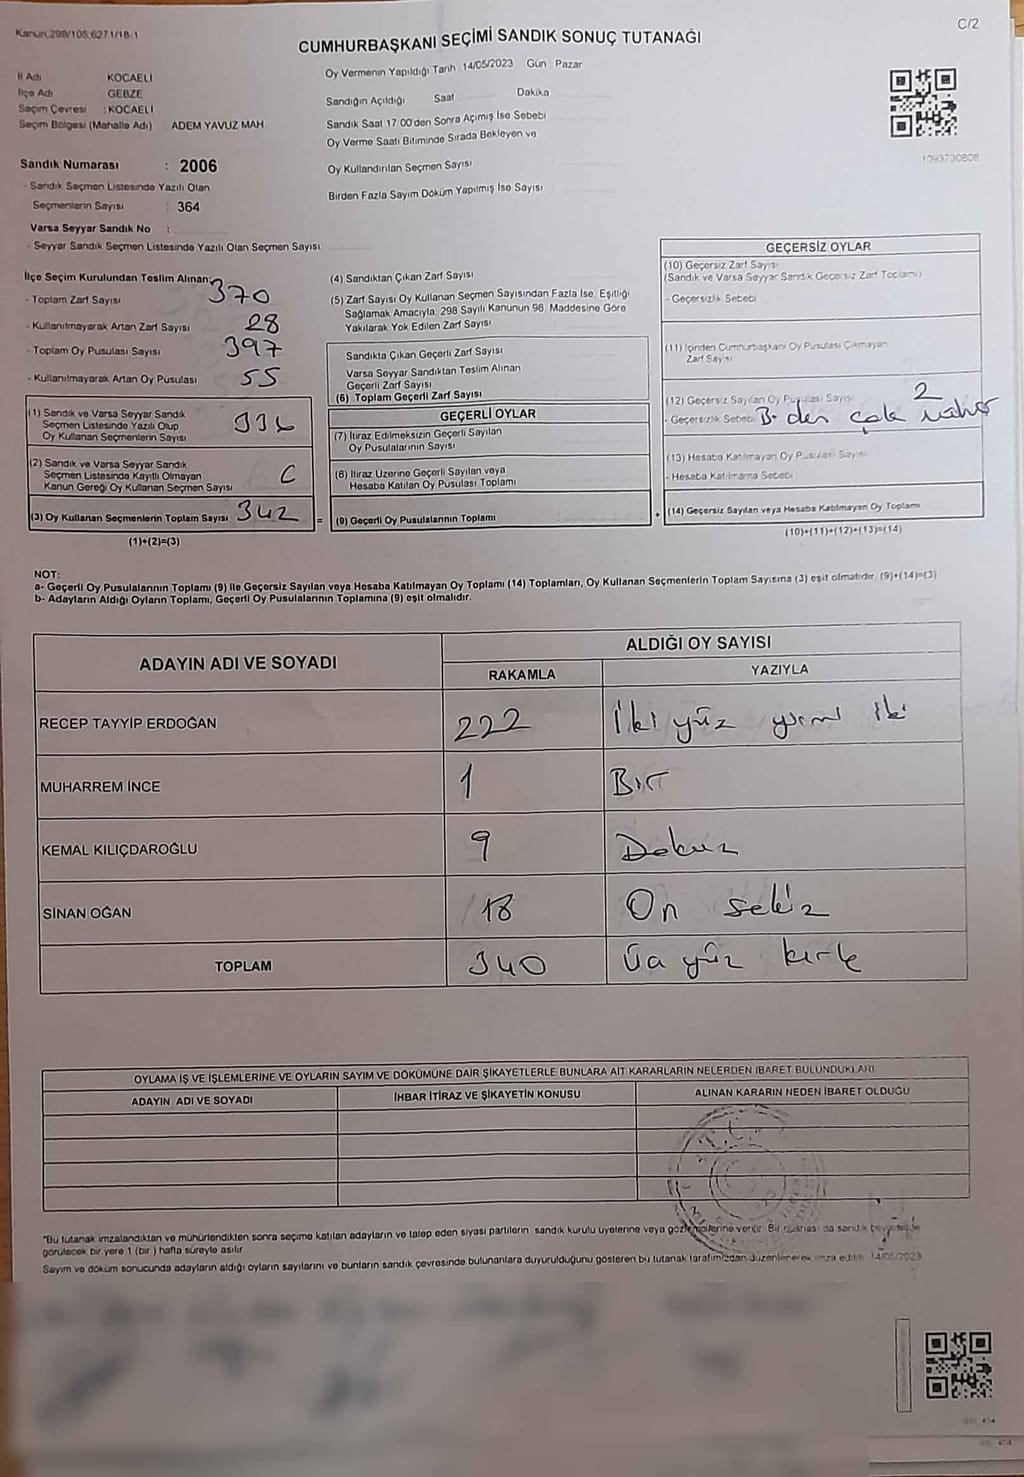 Kanun.298/105.6271/18-1
C/2
CUMHURBAŞKANI SEÇİMİ SANDIK SONUÇ TUTANAĞI
İl Adı KOCAELİ
İlçe Adı GEBZE
Seçim Çevresi : KOCAELİ
Seçim Bölgesi (Mahalle Adı) ADEM YAVUZ MAH
Sandık Numarası : 2006
- Sandık Seçmen Listesinde Yazılı Olan
Seçmenlerin Sayısı : 364
Varsa Seyyar Sandık No :
- Seyyar Sandık Seçmen Listesinde Yazılı Olan Seçmen Sayısı
Oy Vermenin Yapıldığı Tarih 14/05/2023 Gün Pazar
Sandığın Açıldığı Saat Dakika
Sandık Saat 17.00'den Sonra Açımış İse Sebebi
Oy Verme Saati Bitiminde Sırada Bekleyen ve
Oy Kullandırılan Seçmen Sayısı
Birden Fazla Sayım Döküm Yapılmış İse Sayısı
1093730808
İlçe Seçim Kurulundan Teslim Alınan:
- Toplam Zarf Sayısı 370
- Kullanılmayarak Artan Zarf Sayısı 28
- Toplam Oy Pusulası Sayısı 397
- Kullanılmayarak Artan Oy Pusulası 55
(1) Sandık ve Varsa Seyyar Sandık
Seçmen Listesinde Yazılı Olup
Oy Kullanan Seçmenlerin Sayısı 336
(2) Sandık ve Varsa Seyyar Sandık
Seçmen Listesinde Kayıtlı Olmayan
Kanun Gereği Oy Kullanan Seçmen Sayısı
(3) Oy Kullanan Seçmenlerin Toplam Sayısı 342
(1)+(2)=(3)
(4) Sandıktan Çıkan Zarf Sayısı
(5) Zarf Sayısı Oy Kullanan Seçmen Sayısından Fazla İse, Eşitliği
Sağlamak Amacıyla, 298 Sayılı Kanunun 98. Maddesine Göre
Yakılarak Yok Edilen Zarf Sayısı
Sandıkta Çıkan Geçerli Zarf Sayısı
Varsa Seyyar Sandıktan Teslim Alınan
Geçerli Zarf Sayısı
(6) Toplam Geçerli Zarf Sayısı
GEÇERLİ OYLAR
(7) İtiraz Edilmeksizin Geçerli Sayılan
Oy Pusulalarının Sayısı
(8) İtiraz Üzerine Geçerli Sayılan veya
Hesaba Katılan Oy Pusulası Toplamı
= (9) Geçerli Oy Pusulalarının Toplamı
GEÇERSİZ OYLAR
(10) Geçersiz Zarf Sayısı
(Sandık ve Varsa Seyyar Sandık Geçersiz Zarf Toplamı)
- Geçersizlik Sebebi
(11) İçinden Cumhurbaşkanı Oy Pusulası Çıkmayan
Zarf Sayısı
(12) Geçersiz Sayılan Oy Pusulası Sayısı 2
- Geçersizlik Sebebi den çok mühür
(13) Hesaba Katılmayan Oy Pusulası Sayısı
- Hesaba Katılmama Sebebi
+ (14) Geçersiz Sayılan veya Hesaba Katılmayan Oy Toplamı
(10)+(11)+(12)+(13)=(14)
NOT:
a- Geçerli Oy Pusulalarının Toplamı (9) ile Geçersiz Sayılan veya Hesaba Katılmayan Oy Toplamı (14) Toplamları, Oy Kullanan Seçmenlerin Toplam Sayısına (3) eşit olmalıdır. (9)+(14)=(3)
b- Adayların Aldığı Oyların Toplamı, Geçerli Oy Pusulalarının Toplamına (9) eşit olmalıdır.
ADAYIN ADI VE SOYADI
ALDIĞI OY SAYISI
RAKAMLA YAZIYLA
RECEP TAYYİP ERDOĞAN 222 İki yüz yirmi iki
MUHARREM İNCE 1 Bir
KEMAL KILIÇDAROĞLU 9 Dokuz
SİNAN OĞAN 18 On sekiz
TOPLAM 340 Üç yüz kırk
OYLAMA İŞ VE İŞLEMLERİNE VE OYLARIN SAYIM VE DÖKÜMÜNE DAİR ŞİKAYETLERLE BUNLARA AİT KARARLARIN NELERDEN İBARET BULUNDUKLARI
ADAYIN ADI VE SOYADI İHBAR İTİRAZ VE ŞİKAYETİN KONUSU ALINAN KARARIN NEDEN İBARET OLDUĞU
T.C.
*Bu tutanak imzalandıktan ve mühürlendikten sonra seçime katılan adayların ve talep eden siyasi partilerin sandık kurulu üyelerine veya gözlemcilerine verilir. Bir nüshası da sandık çevresinde
görülecek bir yere 1 (bir) hafta süreyle asılır.
Sayım ve döküm sonucunda adayların aldığı oyların sayılarını ve bunların sandık çevresinde bulunanlara duyurulduğunu gösteren bu tutanak tarafımızdan düzenlenerek imza edildi. 14/05/2023